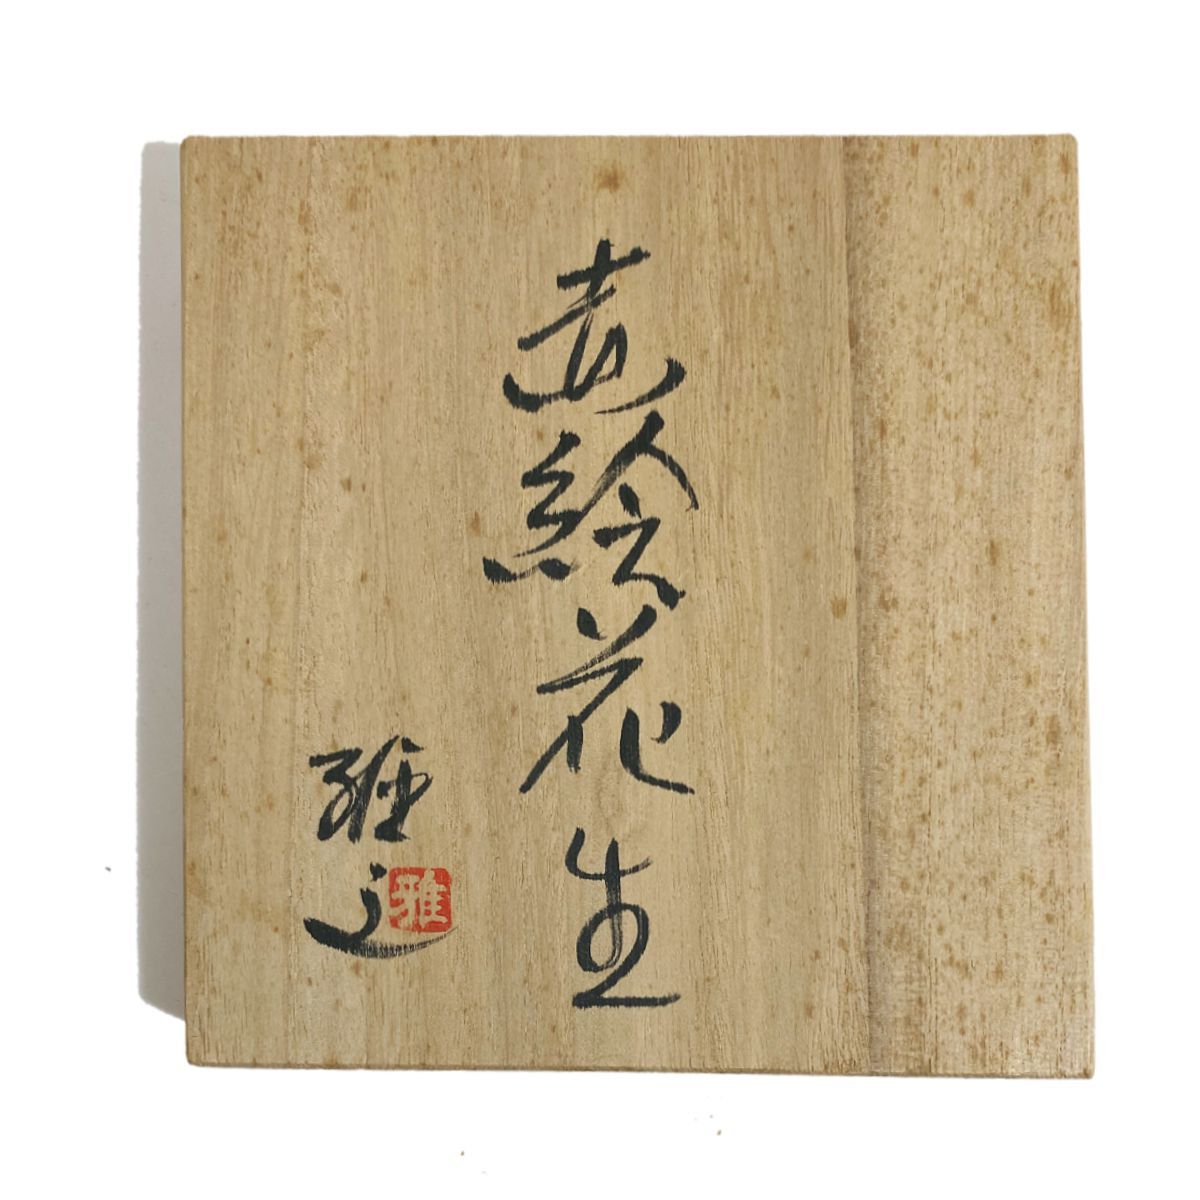 赤絵花生
雅之
雅